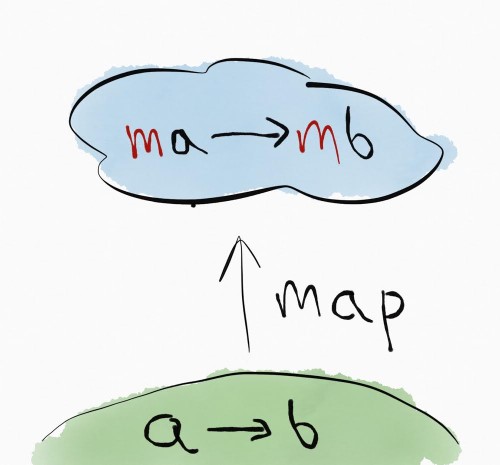 ma → mb
map
a → b